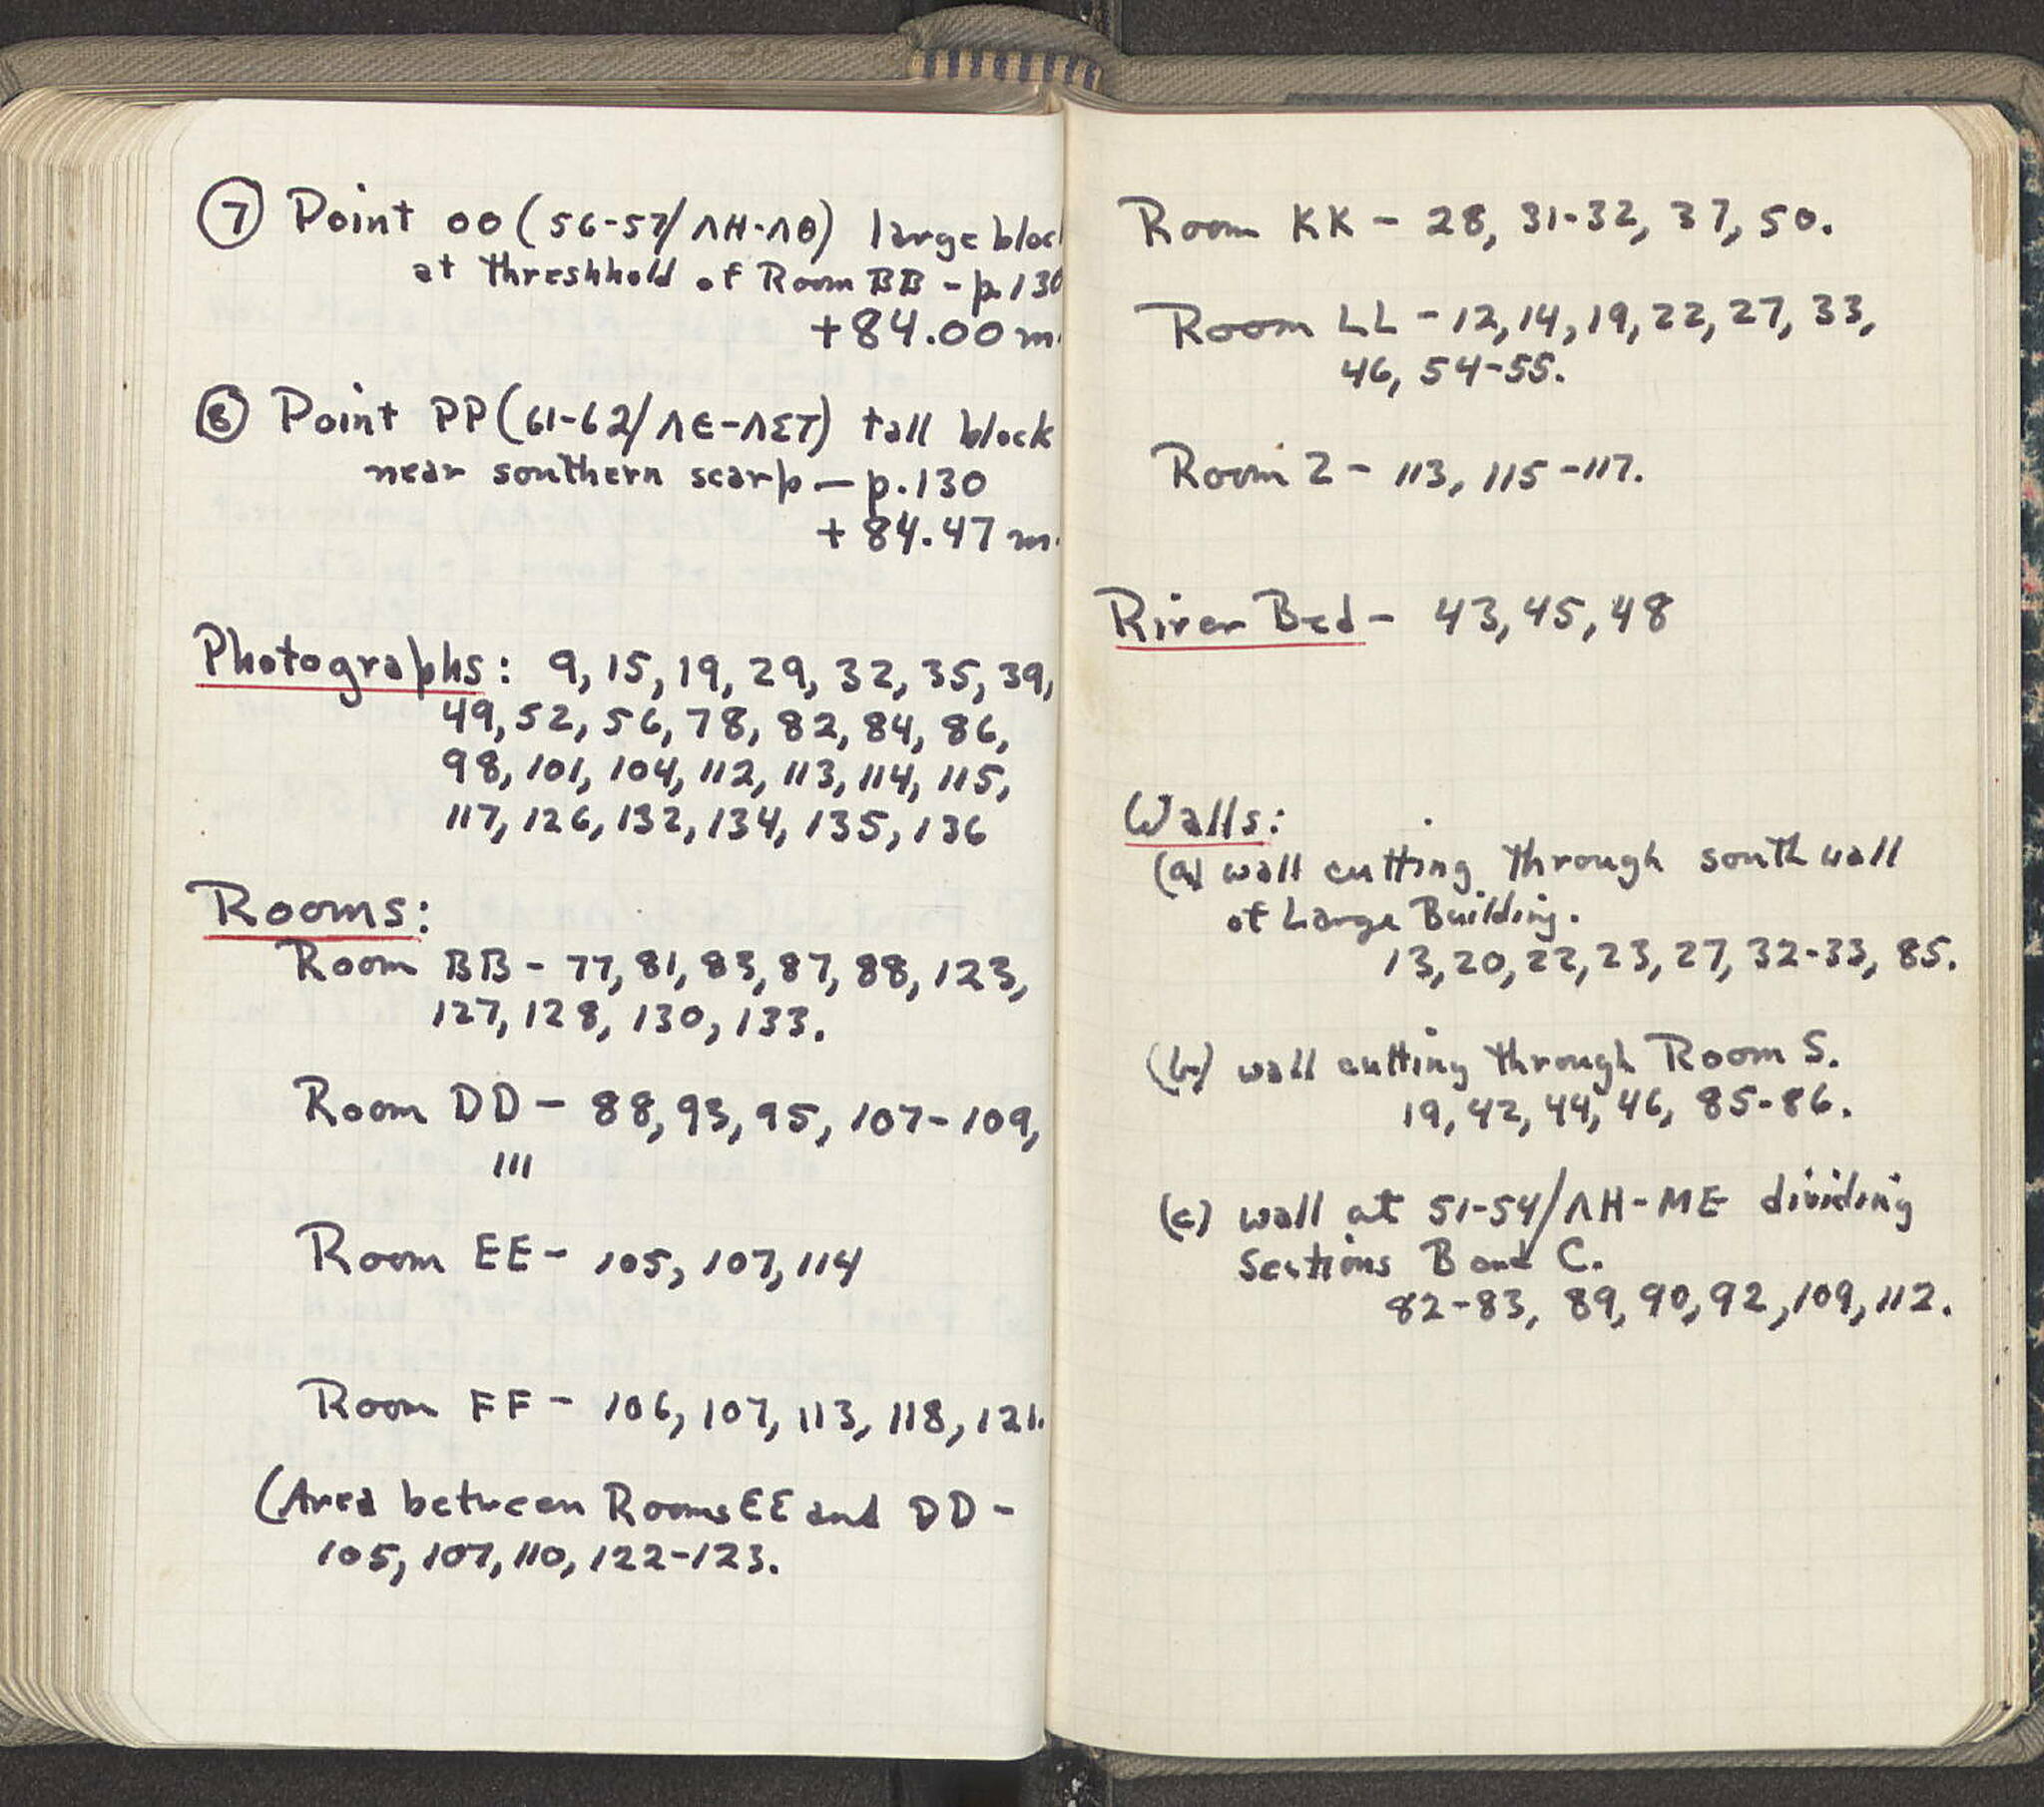 ⑦ Point OO (56-57/ΛH-ΛΘ) large bloc
at threshhold of Room BB - p. 130
+84.00 m.
⑧ Point PP (61-62/ΛE-ΛΣT) tall block
near southern scarp — p. 130
+ 84.47 m.
Photographs: 9, 15, 19, 29, 32, 35, 39,
49, 52, 56, 78, 82, 84, 86,
98, 101, 104, 112, 113, 114, 115,
117, 126, 132, 134, 135, 136
Rooms:
Room BB - 77, 81, 83, 87, 88, 123,
127, 128, 130, 133.
Room DD - 88, 93, 95, 107-109,
111
Room EE - 105, 107, 114
Room FF - 106, 107, 113, 118, 121.
(Area between Rooms EE and DD -
105, 107, 110, 122-123.
Room KK - 28, 31-32, 37, 50.
Room LL - 12, 14, 19, 22, 27, 33,
46, 54-55.
Room Z - 113, 115-117.
River Bed - 43, 45, 48
Walls:
(a) wall cutting through south wall
of Large Building.
13, 20, 22, 23, 27, 32-33, 85.
(b) wall cutting through Room S.
19, 42, 44, 46, 85-86.
(c) wall at 51-54/ΛH-ME dividing
Sections B and C.
82-83, 89, 90, 92, 109, 112.